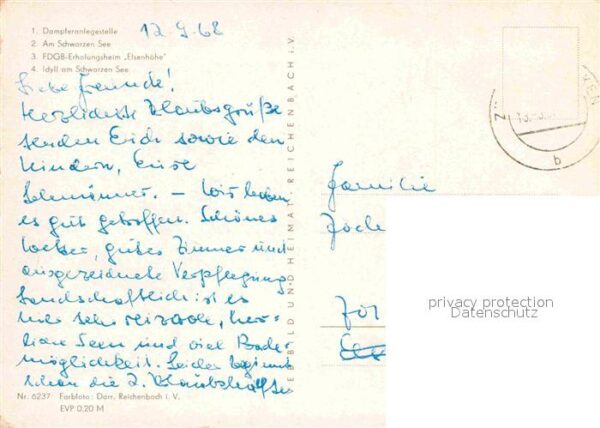 12.9.68
1. Dampferanlegestelle
2. Am Schwarzen See
3. FDGB-Erholungsheim „Elsenhöhe"
4. Idyll am Schwarzen See
Liebe Freunde!
Herzlichste Urlaubsgrüße
senden Euch sowie den
Kindern, Eure
– Wir haben
es gut getroffen. Schönes
Wetter, gutes Zimmer und
ausgezeichnete Verpflegung
Landschaftlich ist es
hier sehr reizvoll, herr-
liche Seen und viel Bade-
möglichkeit. Leider beginnt
schon die 2. Urlaubshälfte
Nr. 6237 Farbfoto: Darr, Reichenbach i. V.
EVP 0,20 M
BILD UND HEIMAT REICHENBACH i. V.
b
Familie
privacy protection
Datenschutz